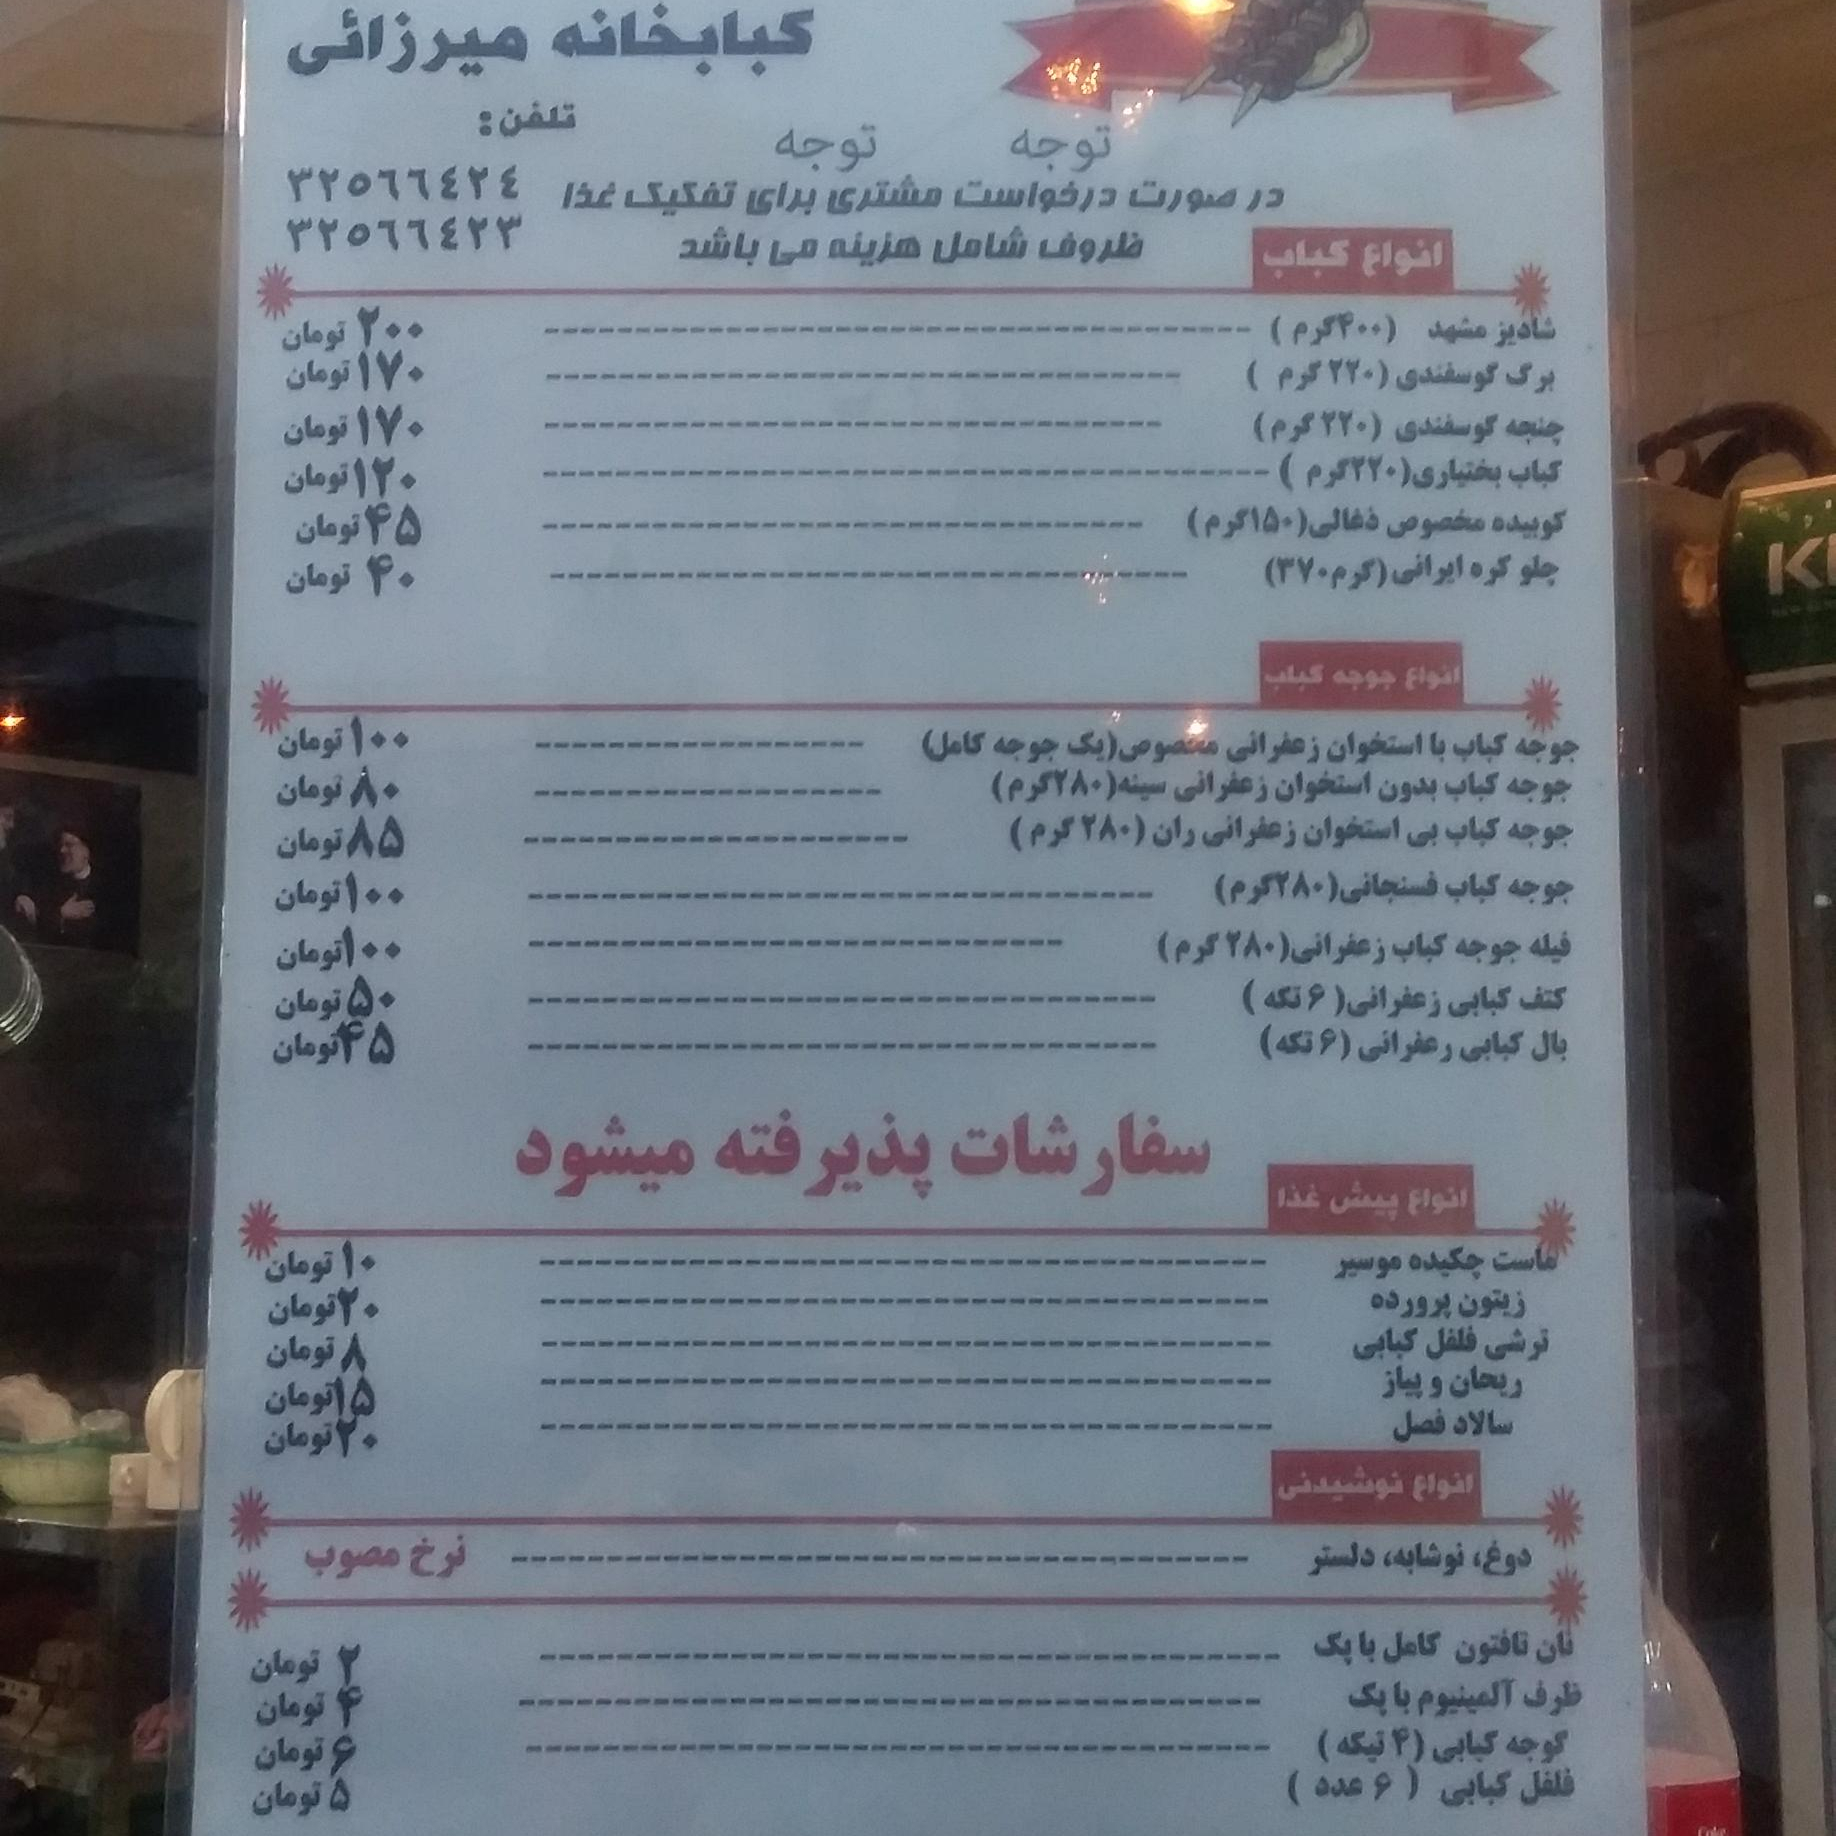 کبابخانه میرزائی
تلفن:
۳۲۵۶۶۴۲۴
۳۲۵۶۶۴۲۳
توجه توجه
در صورت درخواست مشتری برای تفکیک غذا
ظروف شامل هزینه می باشد
انواع کباب
شادیز مشهد (۴۰۰گرم ) ۲۰۰ تومان
برگ گوسفندی (۲۲۰ گرم ) ۱۷۰ تومان
چنجه گوسفندی (۲۲۰ گرم) ۱۷۰ تومان
کباب بختیاری(۲۲۰گرم ) ۱۲۰ تومان
کوبیده مخصوص ذغالی(۱۵۰گرم) ۴۵ تومان
چلو کره ایرانی(گرم۳۷۰) ۴۰ تومان
انواع جوجه کباب
جوجه کباب با استخوان زعفرانی مخصوص(یک جوجه کامل) ۱۰۰ تومان
جوجه کباب بدون استخوان زعفرانی سینه(۲۸۰گرم) ۸۰ تومان
جوجه کباب بی استخوان زعفرانی ران (۲۸۰ گرم ) ۸۵ تومان
جوجه کباب فسنجانی(۲۸۰گرم) ۱۰۰ تومان
فیله جوجه کباب زعفرانی(۲۸۰ گرم ) ۱۰۰ تومان
کتف کبابی زعفرانی( ۶ تکه ) ۵۰ تومان
بال کبابی رعفرانی (۶ تکه) ۴۵ تومان
سفارشات پذیرفته میشود
انواع پیش غذا
ماست چکیده موسیر ۱۰ تومان
زیتون پرورده ۲۰ تومان
ترشی فلفل کبابی ۸ تومان
ریحان و پیاز ۱۵ تومان
سالاد فصل ۲۰ تومان
انواع نوشیدنی
دوغ، نوشابه، دلستر نرخ مصوب
نان تافتون کامل با پک ۲ تومان
ظرف آلمینیوم با پک ۴ تومان
گوجه کبابی (۴ تیکه ) ۶ تومان
فلفل کبابی ( ۶ عدد ) ۵ تومان
Coke